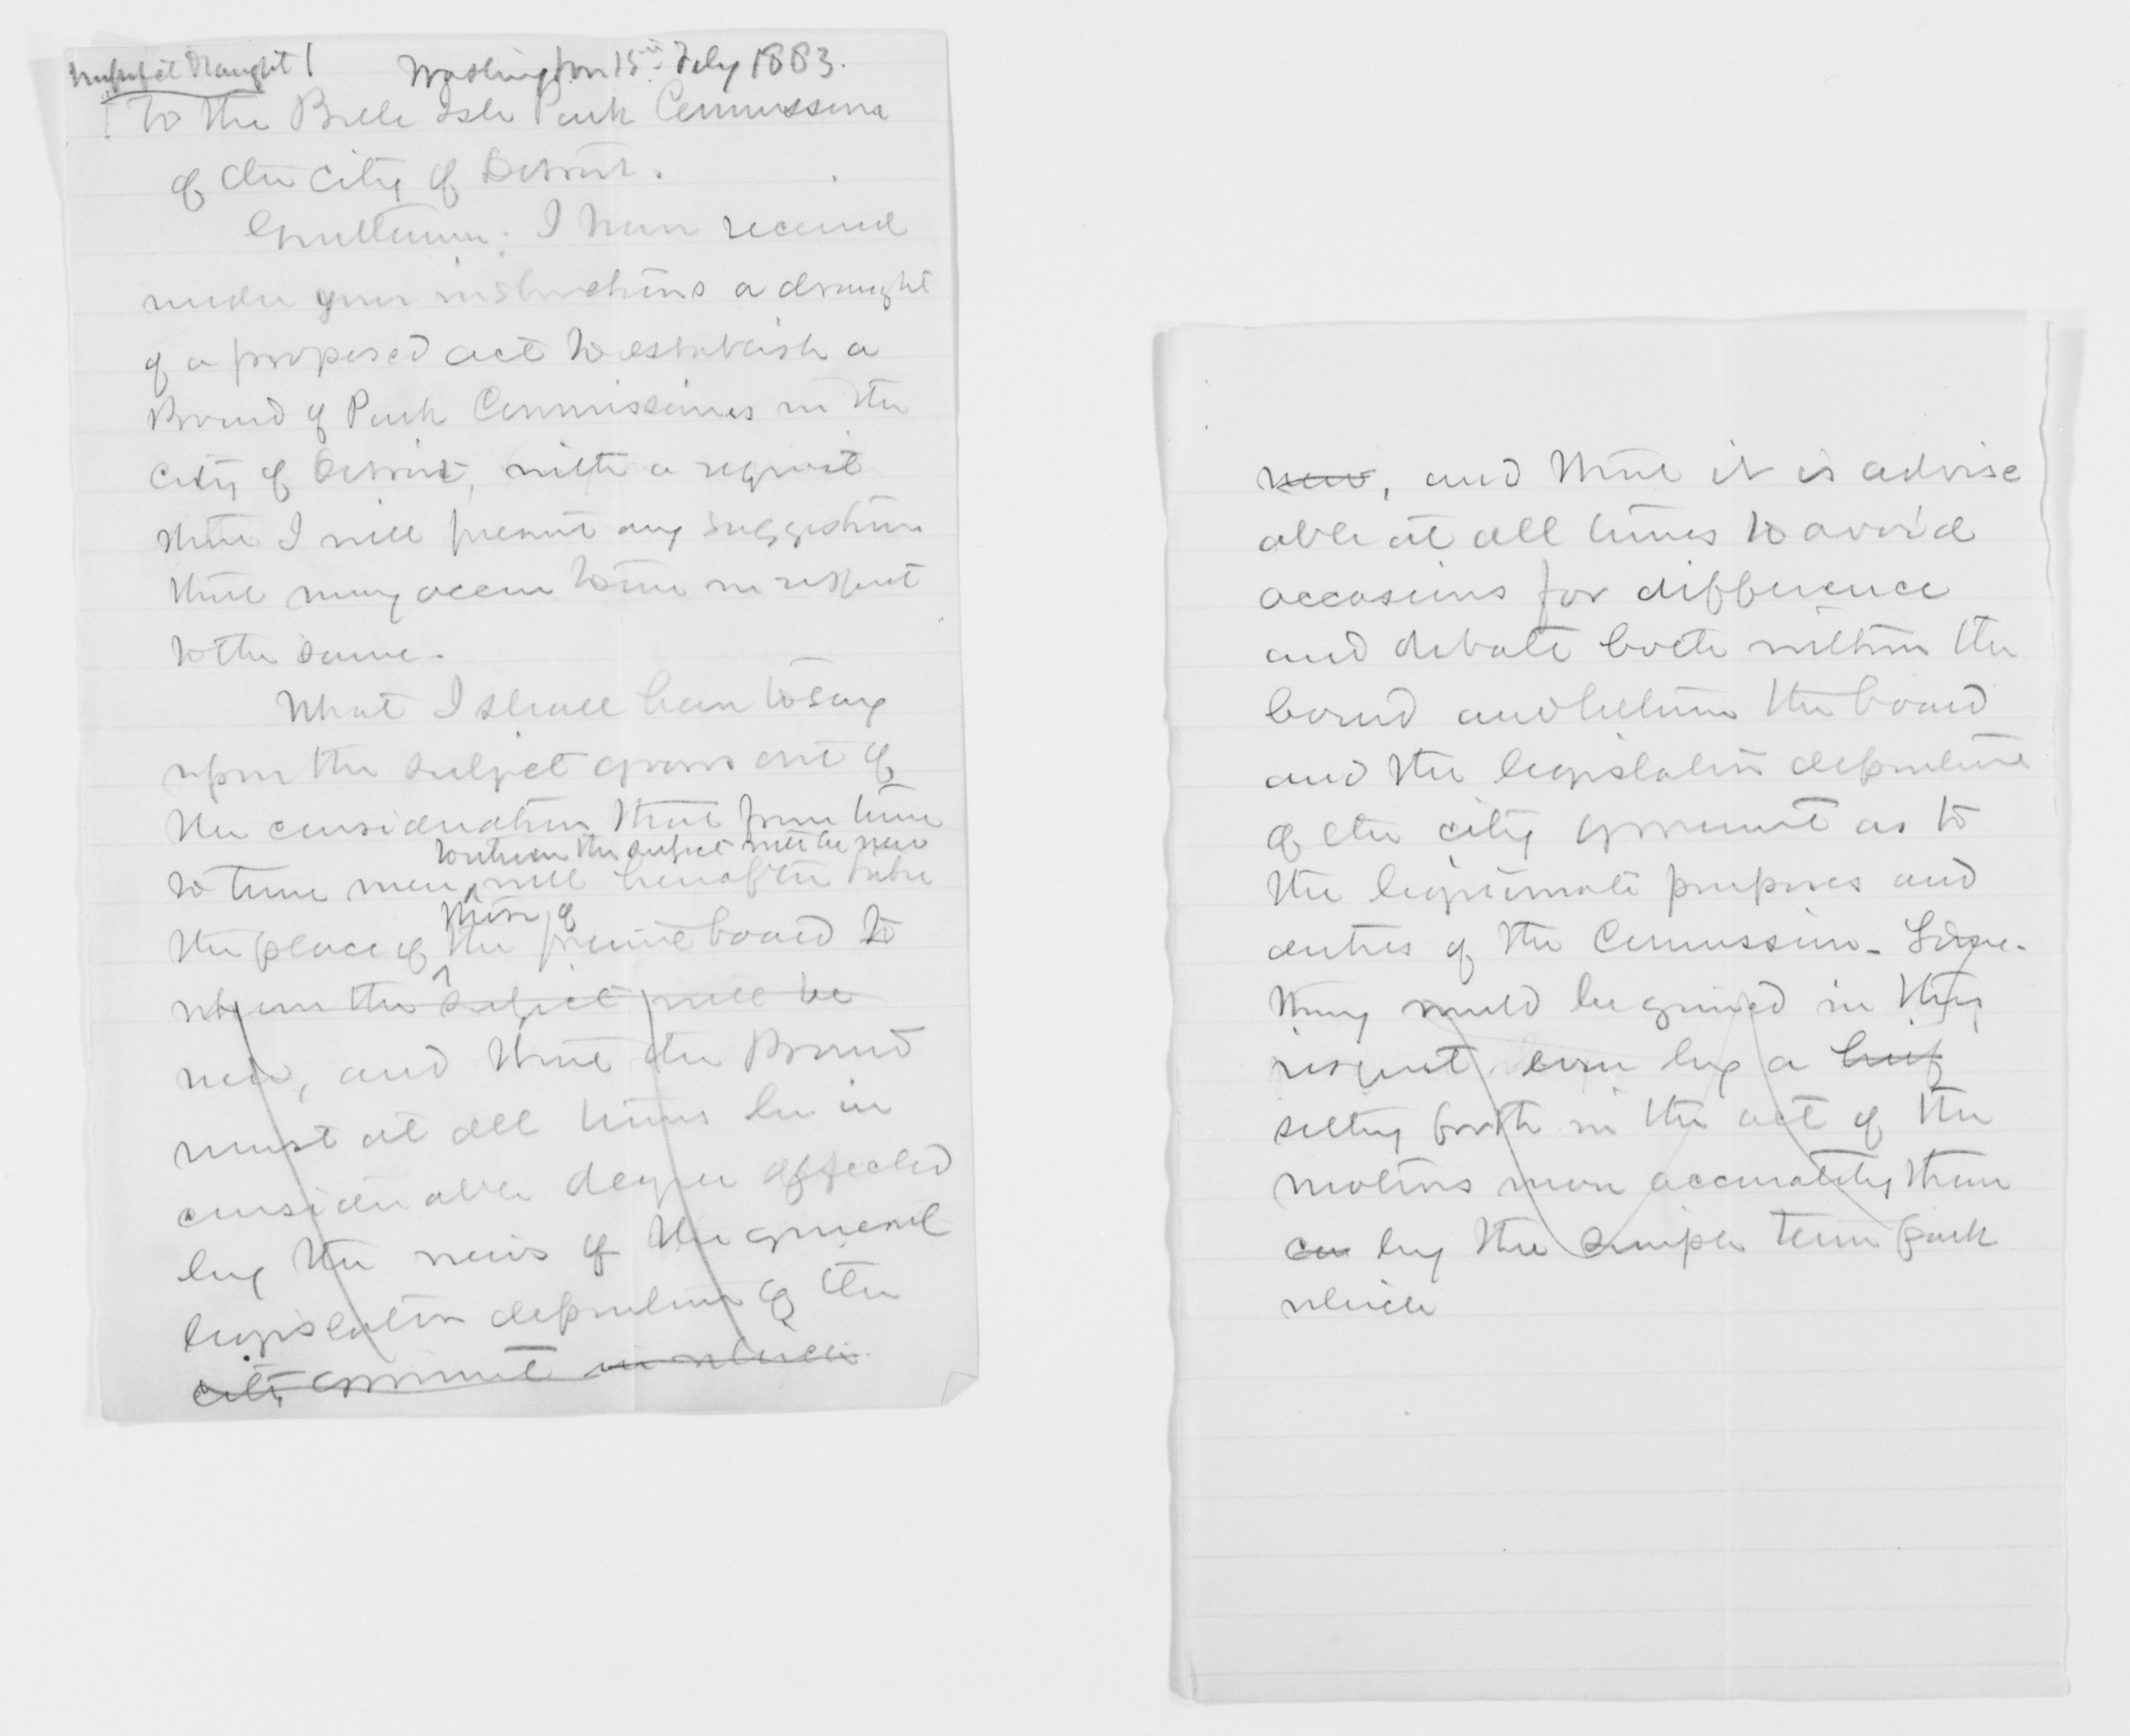 Imperfect Draught
Washington 15th Feby 1883.
To the Belle Isle Park Commissioners
of the City of Detroit.
Gentlemen: I have received
under your instructions a draught
of a proposed act to establish a
Board of Park Commissioners in the
City of Detroit, with a request
that I will present any suggestions
that may occur to me in respect
to the same.
What I shall have to say
upon the subject grows out of
the consideration that from time
to whom the subject will be new
to time men will hereafter take
those of
the place of the present board to
whom the subject will be
new, and that the Board
must at all times be in
considerable degree affected
by the views of the general
legislative department of the
city government in which
new, and that it is advise
able at all times to avoid
occasions for difference
and debate both within the
board and between the board
and the legislative department
of the city government as to
the legitimate purposes and
duties of the Commission. Some-
thing would be gained in this
respect even by a brief
setting forth in the act of the
motives more accurately than
by the simple term park
which